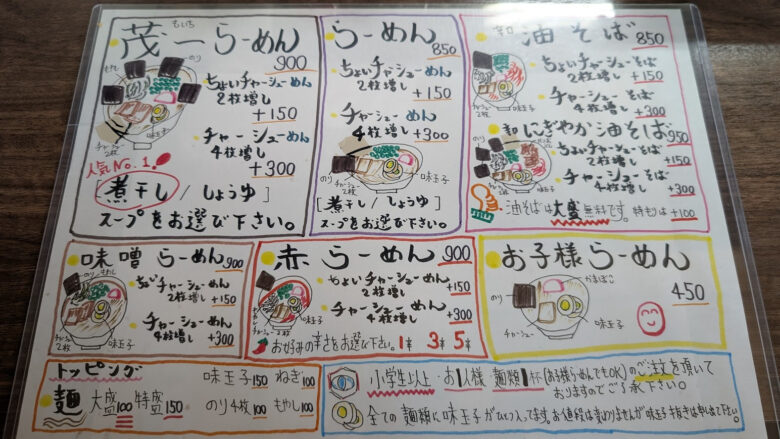 もいち
茂一らーめん
900
もやし
のり
味玉子
チャーシュー2枚
ちょいチャーシューめん
2枚増し
+150
チャーシューめん
4枚増し
+300
人気No.1
[煮干し/しょうゆ]
スープをお選び下さい。
らーめん
850
ちょいチャーシューめん
2枚増し
+150
チャーシューめん
4枚増し
+300
のり
チャーシュー2枚
味玉子
[煮干し/しょうゆ]
スープをお選び下さい。
油そば 850
のり
味玉子
ちょいチャーシューそば
2枚増し
+150
チャーシューそば
4枚増し
+300
にぎやか油そば 950
ちょいチャーシューそば
2枚増し
+150
チャーシューそば
4枚増し
+300
のり
味玉子
油そばは大盛無料です。特もりは+100
味噌らーめん 900
のり
もやし
チャーシュー2枚
味玉子
ちょいチャーシューめん
2枚増し
+150
チャーシューめん
4枚増し
+300
赤らーめん 900
チャーシュー2枚
味玉子
ちょいチャーシューめん
2枚増し
+150
チャーシューめん
4枚増し
+300
お好みの辛さをお選び下さい。1辛 3辛 5辛
お子様らーめん
450
のり
かまぼこ
チャーシュー
味玉子
トッピング
味玉子150 ねぎ100
麺 大盛100 特盛150 のり4枚100 もやし100
小学生以上・お1人様 麺類1杯(お子様らーめんでもOK)のご注文を頂いて
おりますのでご了承下さい。
全ての麺類に味玉子がひとつ入ってます。お値段は変わりませんが味玉子抜きは申し出て下さい。